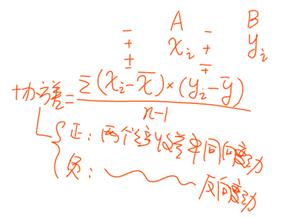 A B
+ xᵢ + yᵢ
± ∓
协方差= Σ(xᵢ-x̄)×(yᵢ-ȳ)
n-1
正:两个 同向变动
负: 反向变动